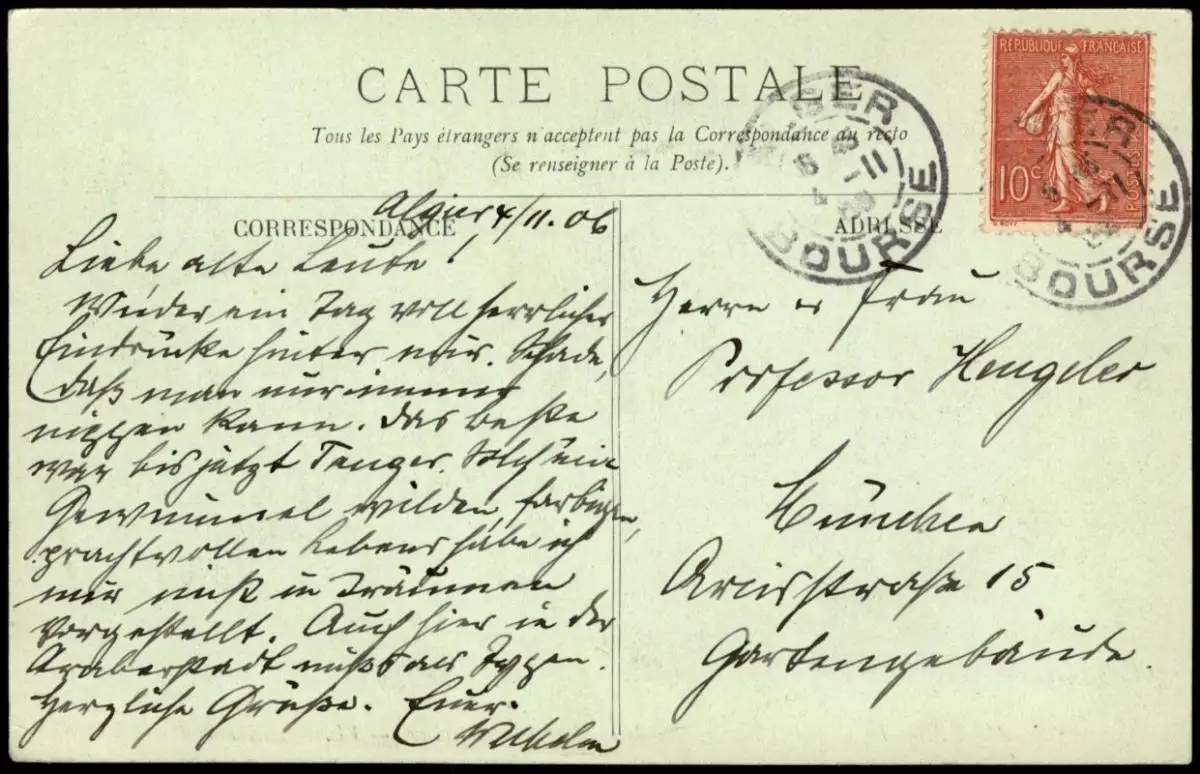 CARTE POSTALE
Tous les Pays étrangers n'acceptent pas la Correspondance au recto
(Se renseigner à la Poste).
RÉPUBLIQUE FRANÇAISE
10c
CORRESPONDANCE
ADRESSE
BOURSE
BOURSE
Algier 4/11.06
Liebe alte Leute!
Wieder ein Tag voll herrlicher
Eindrücke hinter mir. Schade,
daß man nur immer
nippen kann. Das beste
war bis jetzt Tanger. Solch ein
Gewimmel wilden, farbigen,
prachtvollen Lebens habe ich
mir nicht in Träumen
vorgestellt. Auch hier in der
Araberstadt nichts als Typen.
Herzliche Grüße. Euer
Wilhelm
Herrn u Frau
Professor Hengeler
München
Arcisstraße 15
Gartengebäude.